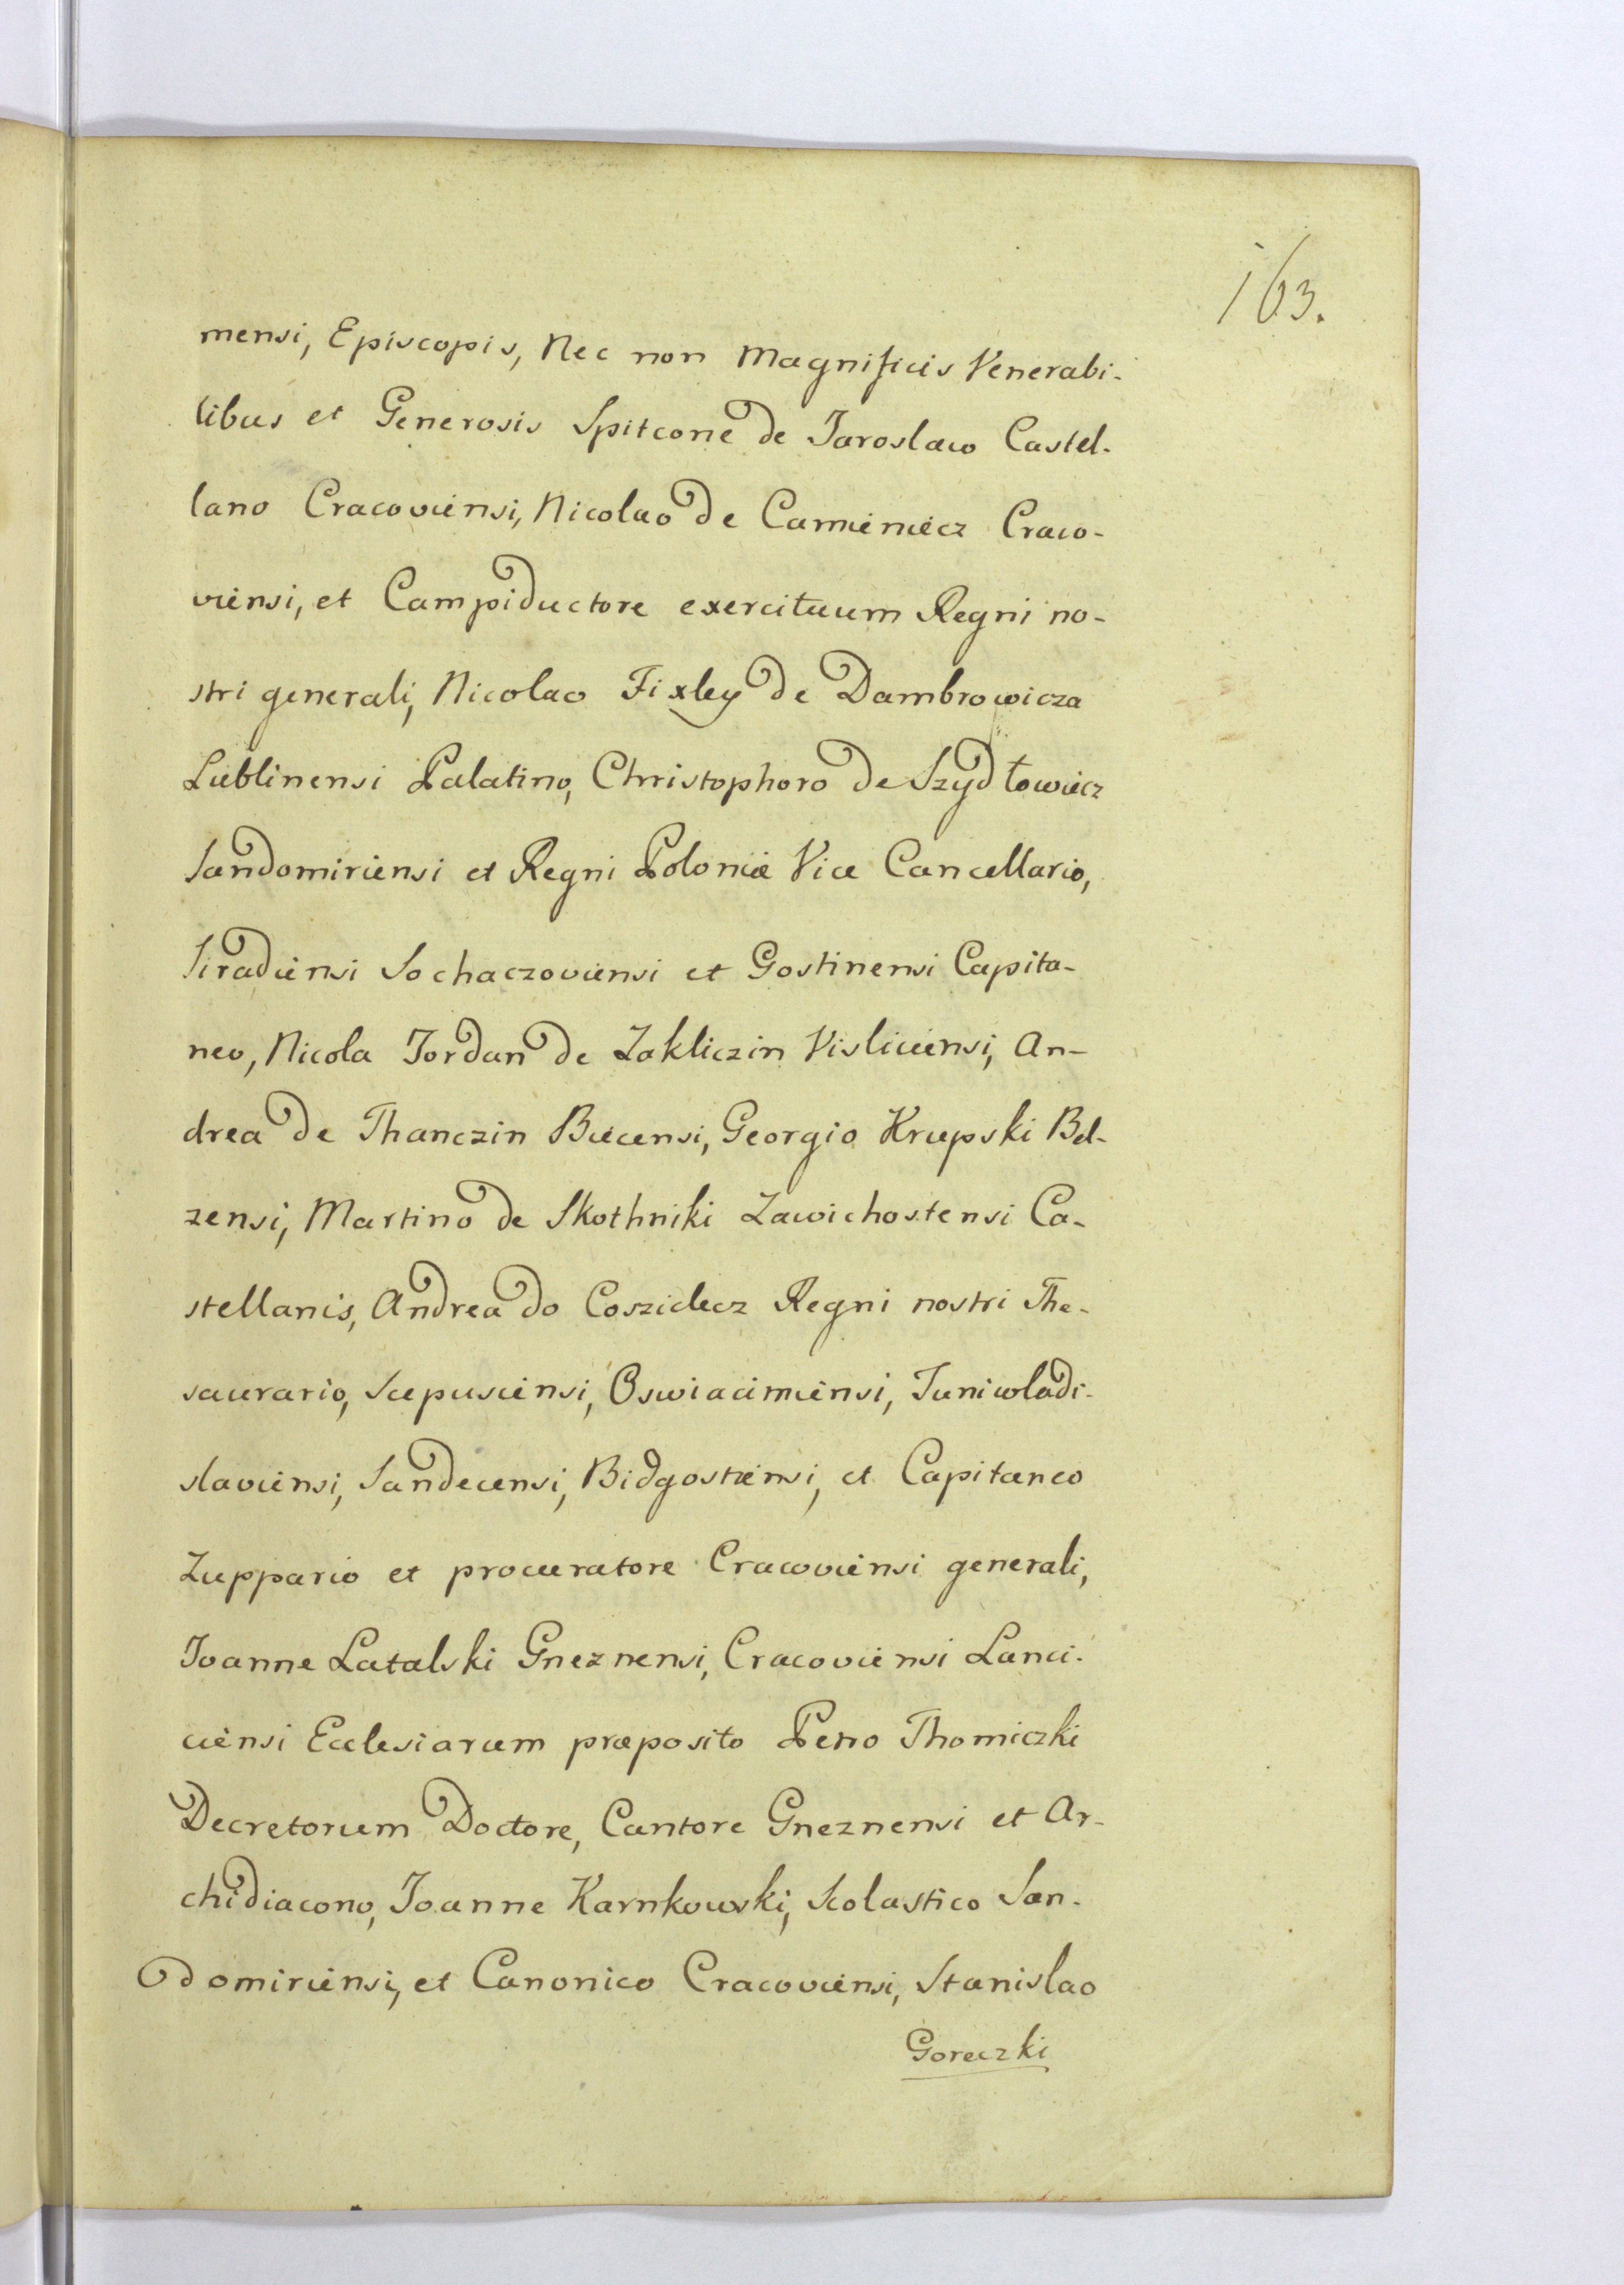 163.
mensi, Episcopis, Nec non Magnificis Venerabi-
libus et Generosis Spitcone de Jaroslaw Castel-
lano Cracoviensi, Nicolao de Camieniecz Craco-
viensi, et Campiductore exercituum Regni no-
stri generali, Nicolao Fixley de Dambrowicza
Lublinensi Palatino, Christophoro de Szydłowiecz
Sandomiriensi et Regni Poloniæ Vice Cancellario,
Siradiensi Sochaczoviensi et Gostinensi Capita-
neo, Nicola Jordan de Zakliczin Visliciensi, An-
drea de Thanczin Biecensi, Georgio Krupski Bel-
zensi, Martino de Skothniki Zawichostensi Ca-
stellanis, Andrea do Cosziclecz Regni nostri The-
saurario, Scepusiensi, Oswiacimiensi, Juniwladi-
slaviensi, Sandecensi, Bidgostiensi, et Capitaneo
Zuppario et procuratore Cracoviensi generali,
Joanne Latalski Gneznensi, Cracoviensi Lanci-
ciensi Ecclesiarum præposito Petro Thomiczki
Decretorum Doctore, Cantore Gneznensi et Ar-
chidiacono, Joanne Karnkowski, Scolastico San-
domiriensi, et Canonico Cracoviensi, Stanislao
Goreczki